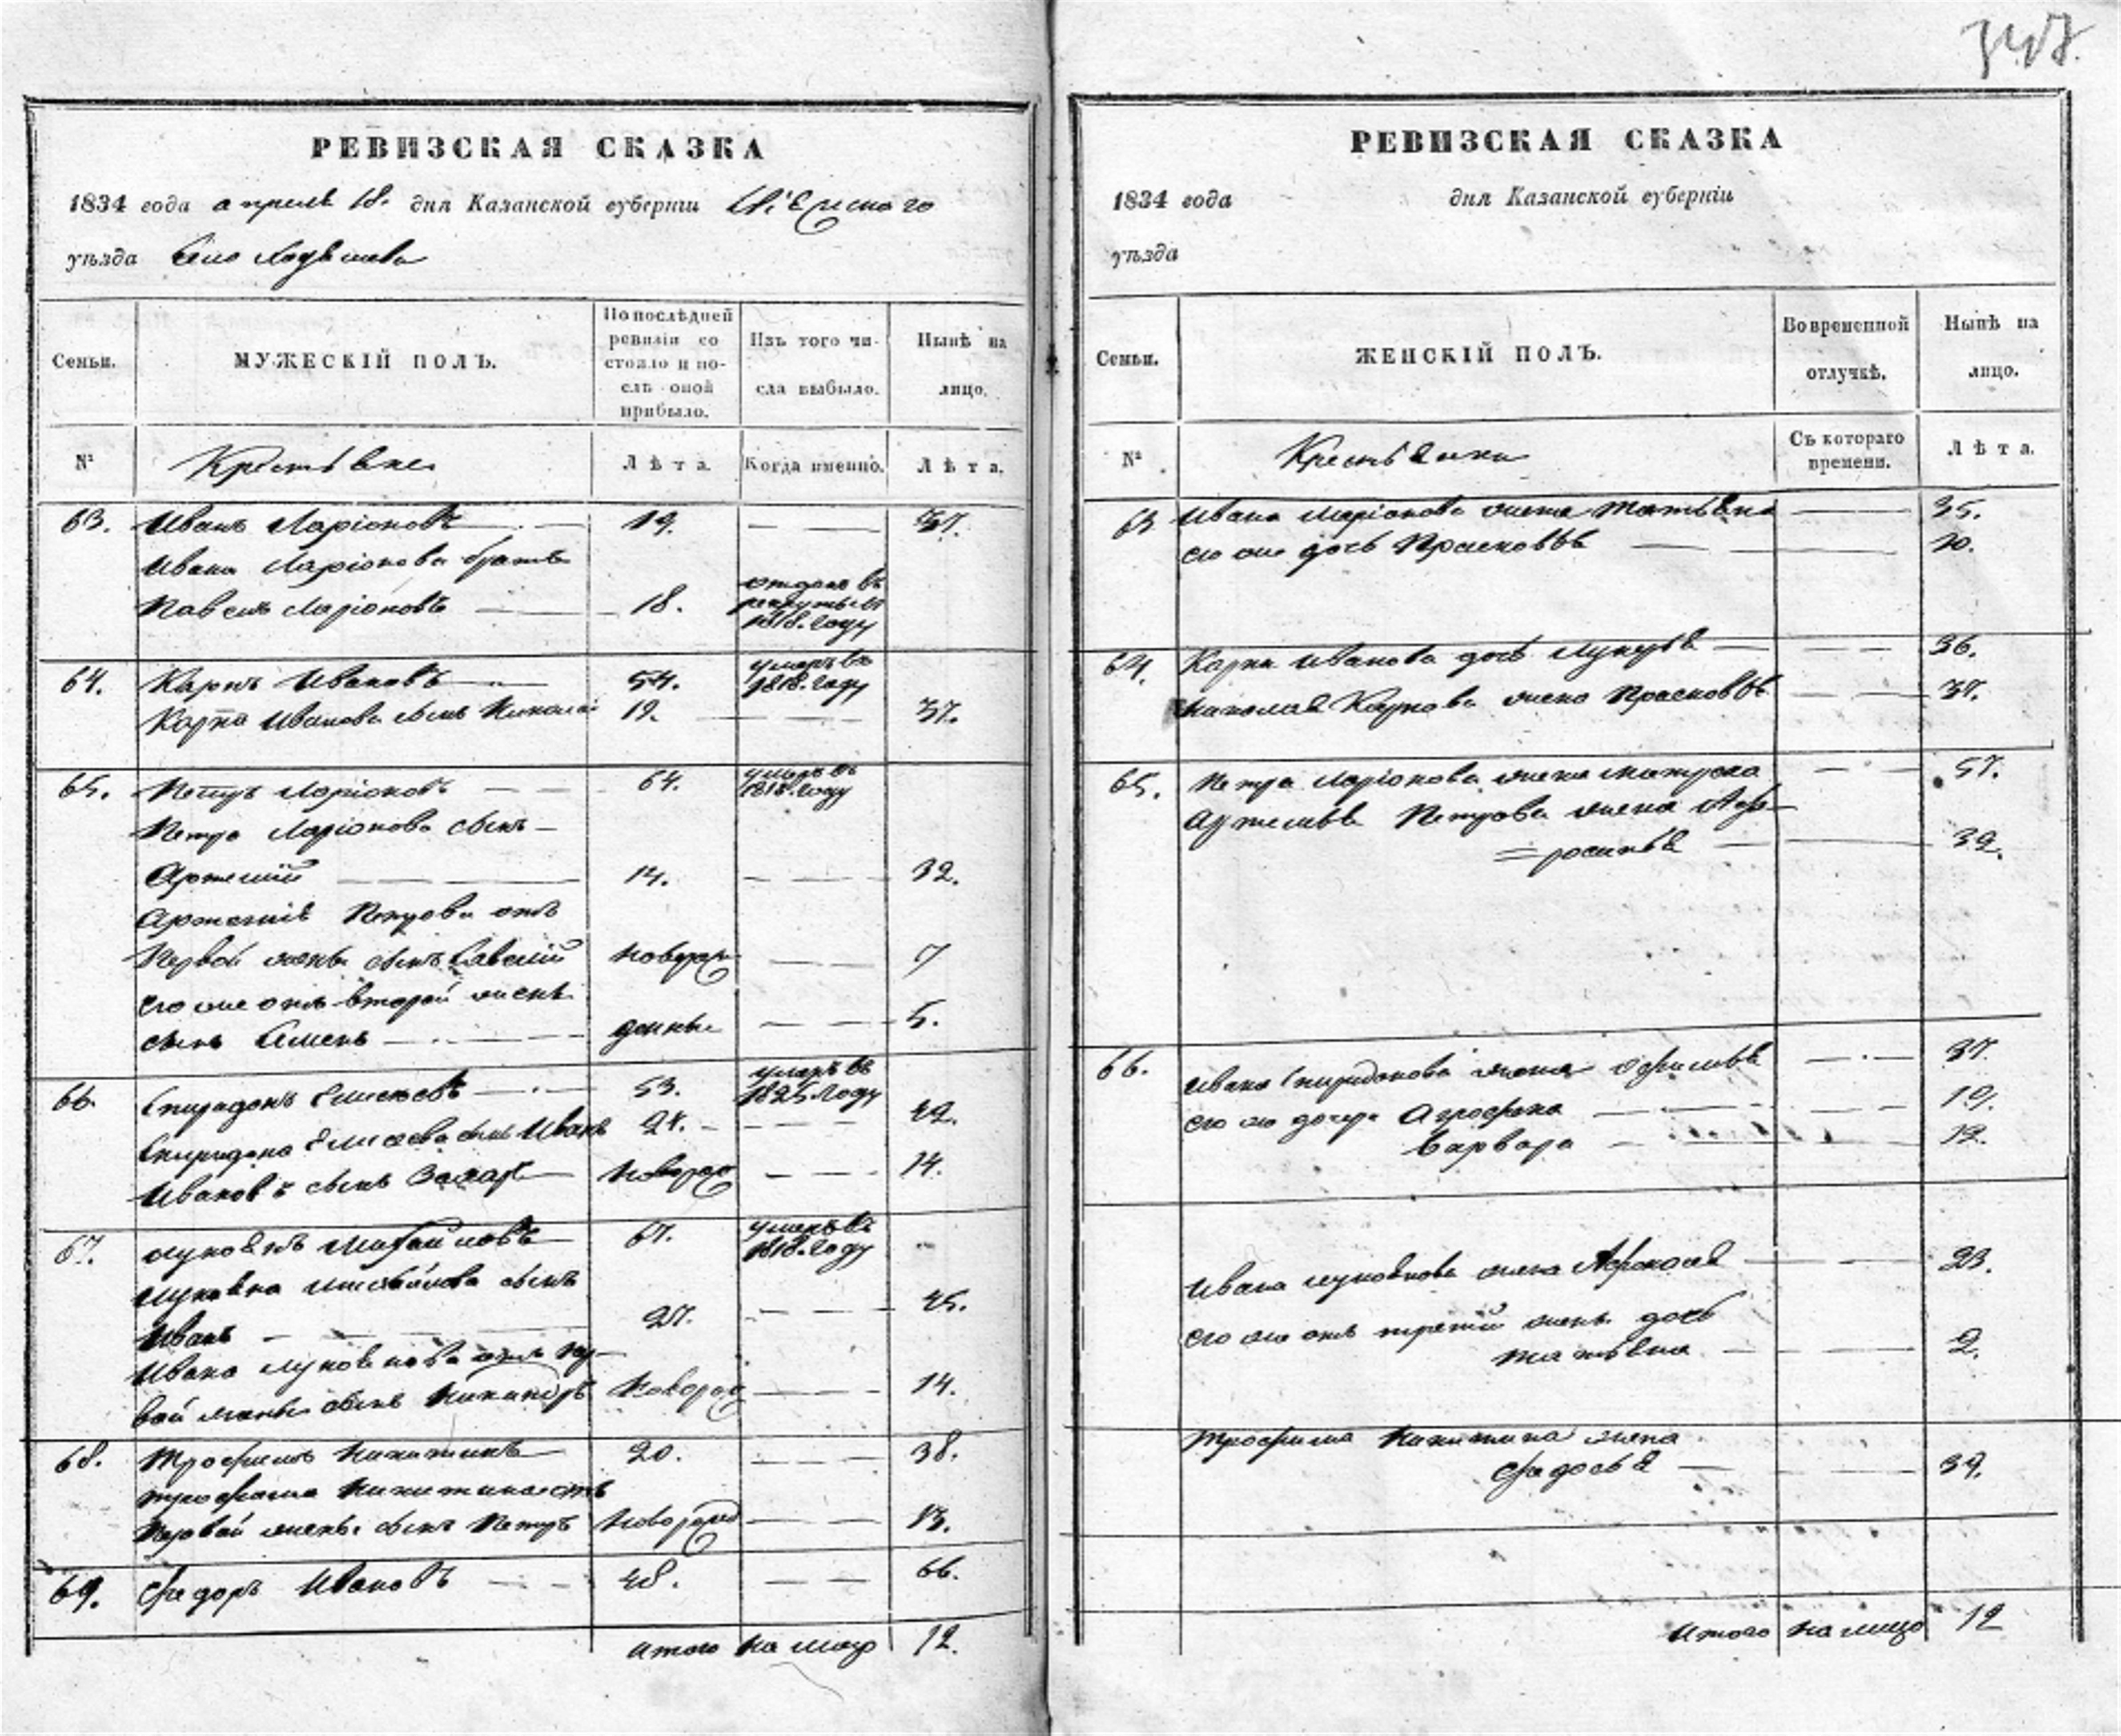 347.
РЕВИЗСКАЯ СКАЗКА
1834 года апреля 18. дня Казанской губернiи
уѣзда Село
Семьи.
МУЖЕСКIЙ ПОЛЪ.
По послѣдней
ревизiи со
стояло и по-
слѣ оной
прибыло.
Изъ того чи-
сла выбыло.
Нынѣ на
лицо.
№
Крестьяне
Лѣта.
Когда именно.
Лѣта.
63. Иванъ Ларiоновъ 19. 37.
Ивана Ларiонова братъ
Павелъ Ларiоновъ 18. отдано въ
рекруты въ
1818. году
64. Карпъ Ивановъ 54. умеръ въ
1818. году
Карпа Иванова сынъ Николай 19. 37.
65. Петръ Ларiоновъ 64. умеръ въ
1818. году
Петра Ларiонова сынъ
Артемiй 14. 32.
Артемiя Петрова отъ
первой жены сынъ Савелiй новорож 7
его же отъ второй жены
сынъ Семенъ денны 5.
66. Спиридонъ Елисеевъ 53. умеръ въ
1825 году
Спиридона Елисеева сынъ Иванъ 24. 42.
Ивановъ сынъ Захаръ новорож 14.
67. Лукоянъ Михайловъ 67. умеръ въ
1818. году
Лукояна Михайлова сынъ
Иванъ 27. 45.
Ивана Лукоянова отъ пер-
вой жены сынъ Никаноръ новорож 14.
68. Трофимъ Никитинъ 20. 38.
Трофима Никитина отъ
первой жены сынъ Петръ новорожд 13.
69. Федоръ Ивановъ 48. 66.
Итого на лицо 12.
РЕВИЗСКАЯ СКАЗКА
1834 года дня Казанской губернiи
уѣзда
Семьи.
ЖЕНСКIЙ ПОЛЪ.
Во временной
отлучкѣ.
Нынѣ на
лицо.
№
Крестьянки
Съ котораго
времени.
Лѣта.
63 Ивана Ларiонова жена Татьяна 35.
его же дочь Прасковья 10.
64. Карпа Иванова дочь Лукерья 36.
Николая Карпова жена Прасковья 37.
65. Петра Ларiонова жена Матрена 57.
Артемья Петрова жена Аф-
росинья 39.
66. Ивана Спиридонова жена 37.
его же дочери Аграфена 19.
Варвара 13.
Ивана Лукоянова жена 23.
его же отъ третiй жены дочь
Татьяна 2.
Трофима Никитина жена
Федосья 39.
Итого на лицо 12